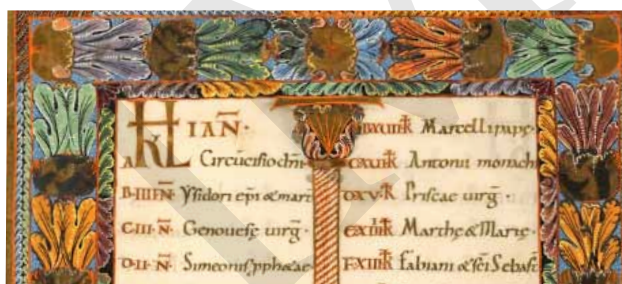 KL IAN̄.
A Circūcisio dn̄i
B IIII N̄ Ysidori ep̄i & mart
C III N̄ Genouefe uirḡ.
D II N̄ Simeonis pphetae
XVII K̄ Marcelli pape.
C XVI K̄ Antonii monach
D XV K̄ Priscae uirḡ.
E XIIII K̄ Marthe & Marie.
F XIII K̄ Fabiani & sc̄i Sebast